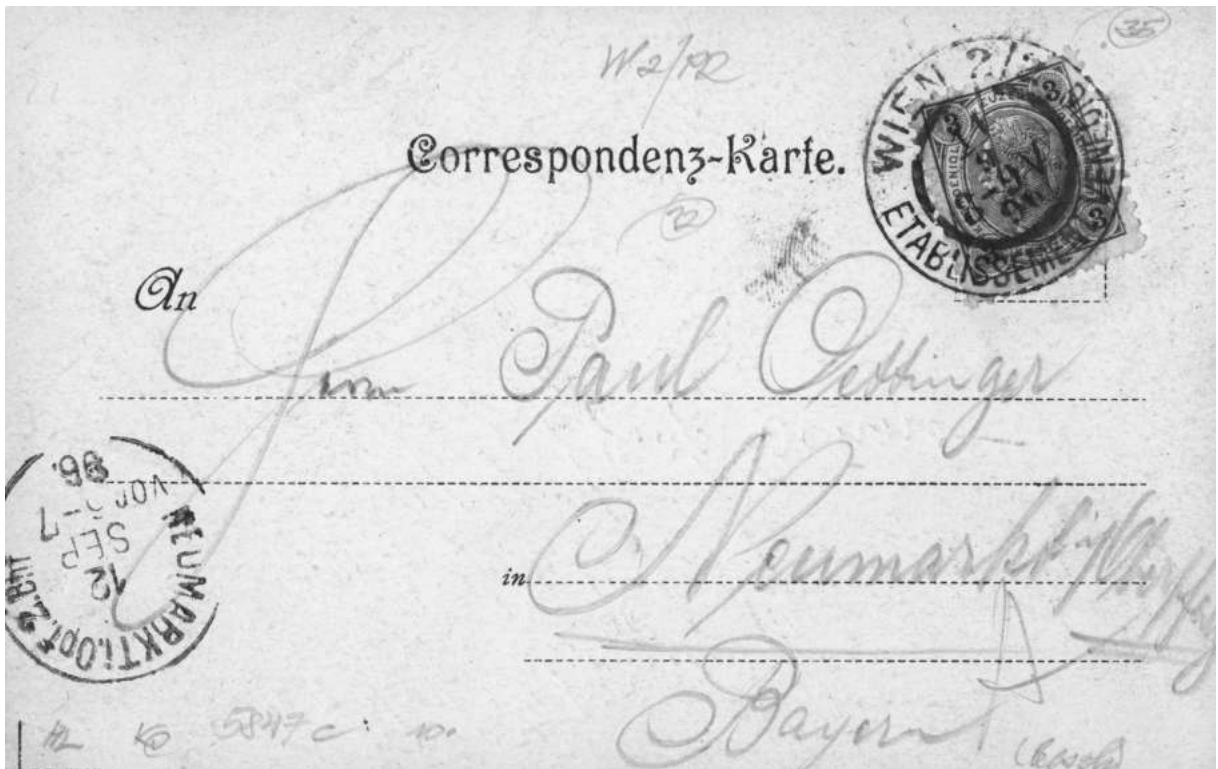 35
W2/
Correspondenz-Karte.
WIEN 2/2 VENEDIG
ETABLISSEMENT
3 3
22
An
Herrn Paul Oettinger
in Neumarkt
Bayern
NEUMARKT i.Opf. 2.Bhf.
12
SEP
VOR 7
96.
5847 c 10.